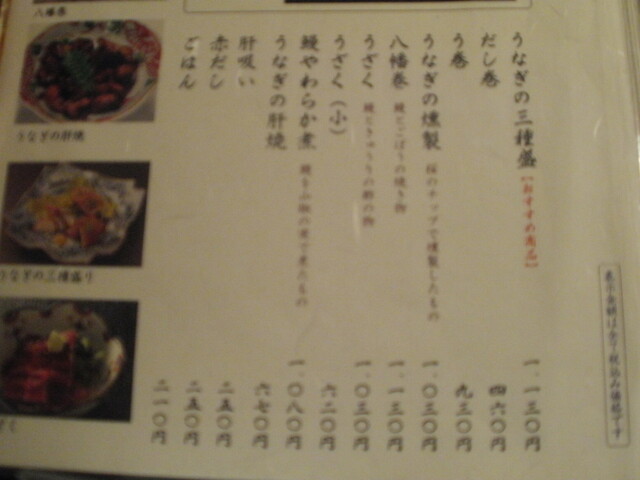 うなぎの三種盛 【おすすめ商品】 一、一三〇円
だし巻 四六〇円
う巻 九三〇円
うなぎの燻製 桜のチップで燻製したもの 一、〇三〇円
八幡巻 鰻とごぼうの焼き物 一、一三〇円
うざく 鰻ときゅうりの酢の物 一、〇三〇円
うざく（小） 六二〇円
鰻やわらか煮 一、〇八〇円
うなぎの肝焼 六七〇円
肝吸い 二五〇円
赤だし 二五〇円
ごはん 二一〇円
表示金額は全て税込み価格です
八幡巻
うなぎの肝焼
うなぎの三種盛り